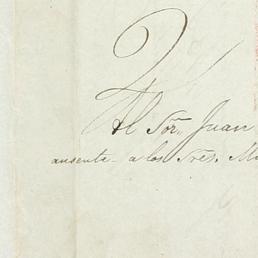 Al Sõr. Juan
ausente a los Sres. M